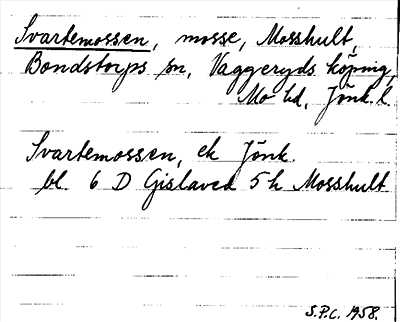 Svartemossen, mosse, Mosshult,
Bondstorps sn, Vaggeryds köping,
Mo hd, Jönk. l.
Svartemossen, ek Jönk.
bl. 6 D Gislaved 5 h Mosshult
S.P.C. 1958.